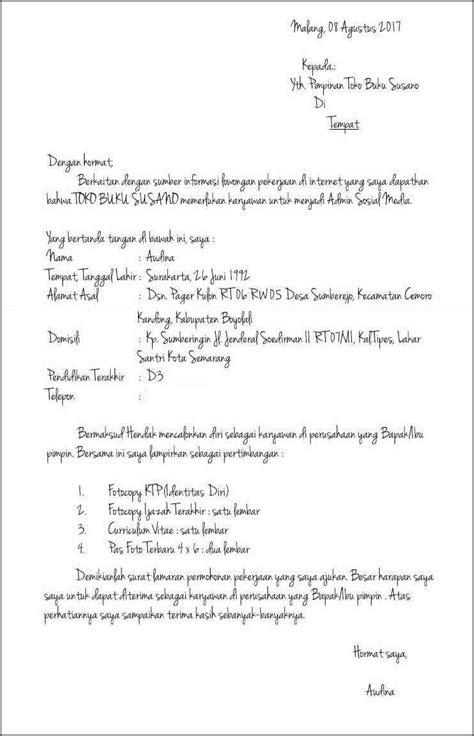 Malang, 08 Agustus 2017
Kepada:
Yth. Pimpinan Toko Buku Susano
Di
Tempat
Dengan hormat,
Berkaitan dengan sumber informasi lowongan pekerjaan di internet yang saya dapatkan
bahwa TOKO BUKU SUSANO memerlukan karyawan untuk menjadi Admin Sosial Media.
Yang bertanda tangan di bawah ini, saya :
Nama : Audina
Tempat, Tanggal Lahir : Surakarta, 26 Juni 1992
Alamat Asal : Dsn. Pager Kulon RT06 RW05 Desa Sumberejo, Kecamatan Cemoro
Kandong, Kabupaten Boyolali
Domisili : Kp. Sumberingin Jl. Jenderal Soedirman 11 RT07/VII, Kal.Tipos, Lakar
Santri Kota Semarang
Pendidikan Terakhir : D3
Telepon :
Bermaksud Hendak mencalonkan diri sebagai karyawan di perusahaan yang Bapak/Ibu
pimpin. Bersama ini saya lampirkan sebagai pertimbangan :
1. Fotocopy KTP(Identitas Diri)
2. Fotocopy Ijazah Terakhir : satu lembar
3. Curriculum Vitae : satu lembar
4. Pas Foto Terbaru 4 x 6 : dua lembar
Demikianlah surat lamaran permohonan pekerjaan yang saya ajukan. Besar harapan saya
saya untuk dapat diterima sebagai karyawan di perusahaan yang Bapak/Ibu pimpin . Atas
perhatiannya saya sampaikan terima kasih sebanyak-banyaknya.
Hormat saya,
Audina